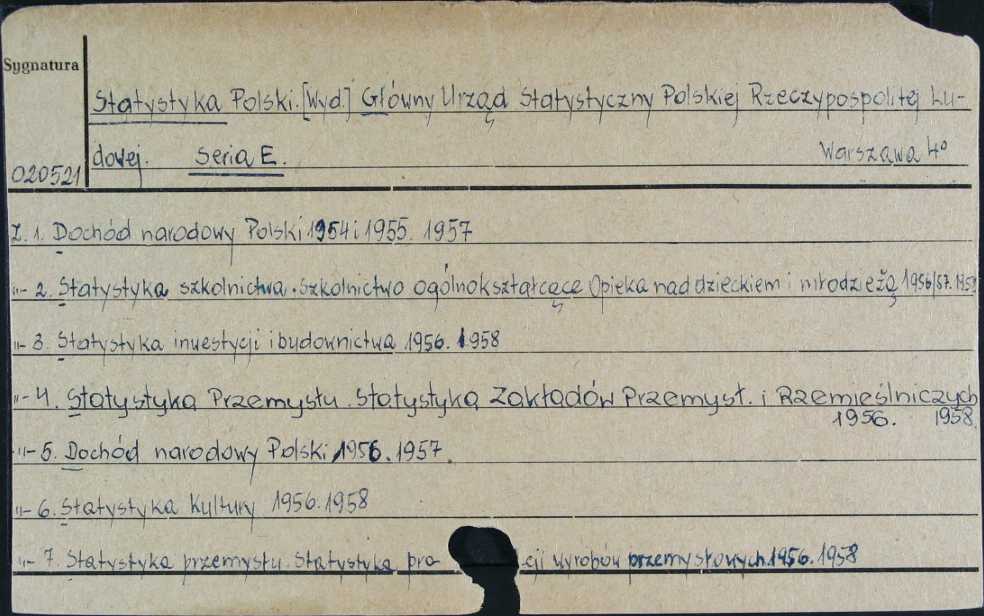 Sygnatura
Statystyka Polski. [Wyd.] Główny Urząd Statystyczny Polskiej Rzeczypospolitej Lu-
dowej. Seria E. Warszawa 4°
020521
Z. 1. Dochód narodowy Polski 1954 i 1955. 1957
"- 2. Statystyka szkolnictwa. Szkolnictwo ogólnokształcące Opieka nad dzieckiem i młodzieżą 1956/57. 1958
"- 3. Statystyka inwestycji i budownictwa 1956. 1958
"- 4. Statystyka Przemysłu. Statystyka Zakładów Przemysł. i Rzemieślniczych
1956. 1958.
"- 5. Dochód narodowy Polski 1956. 1957.
"- 6. Statystyka Kultury 1956. 1958
"- 7. Statystyka przemysłu. Statystyka pro cji wyrobów przemysłowych. 1956. 1958